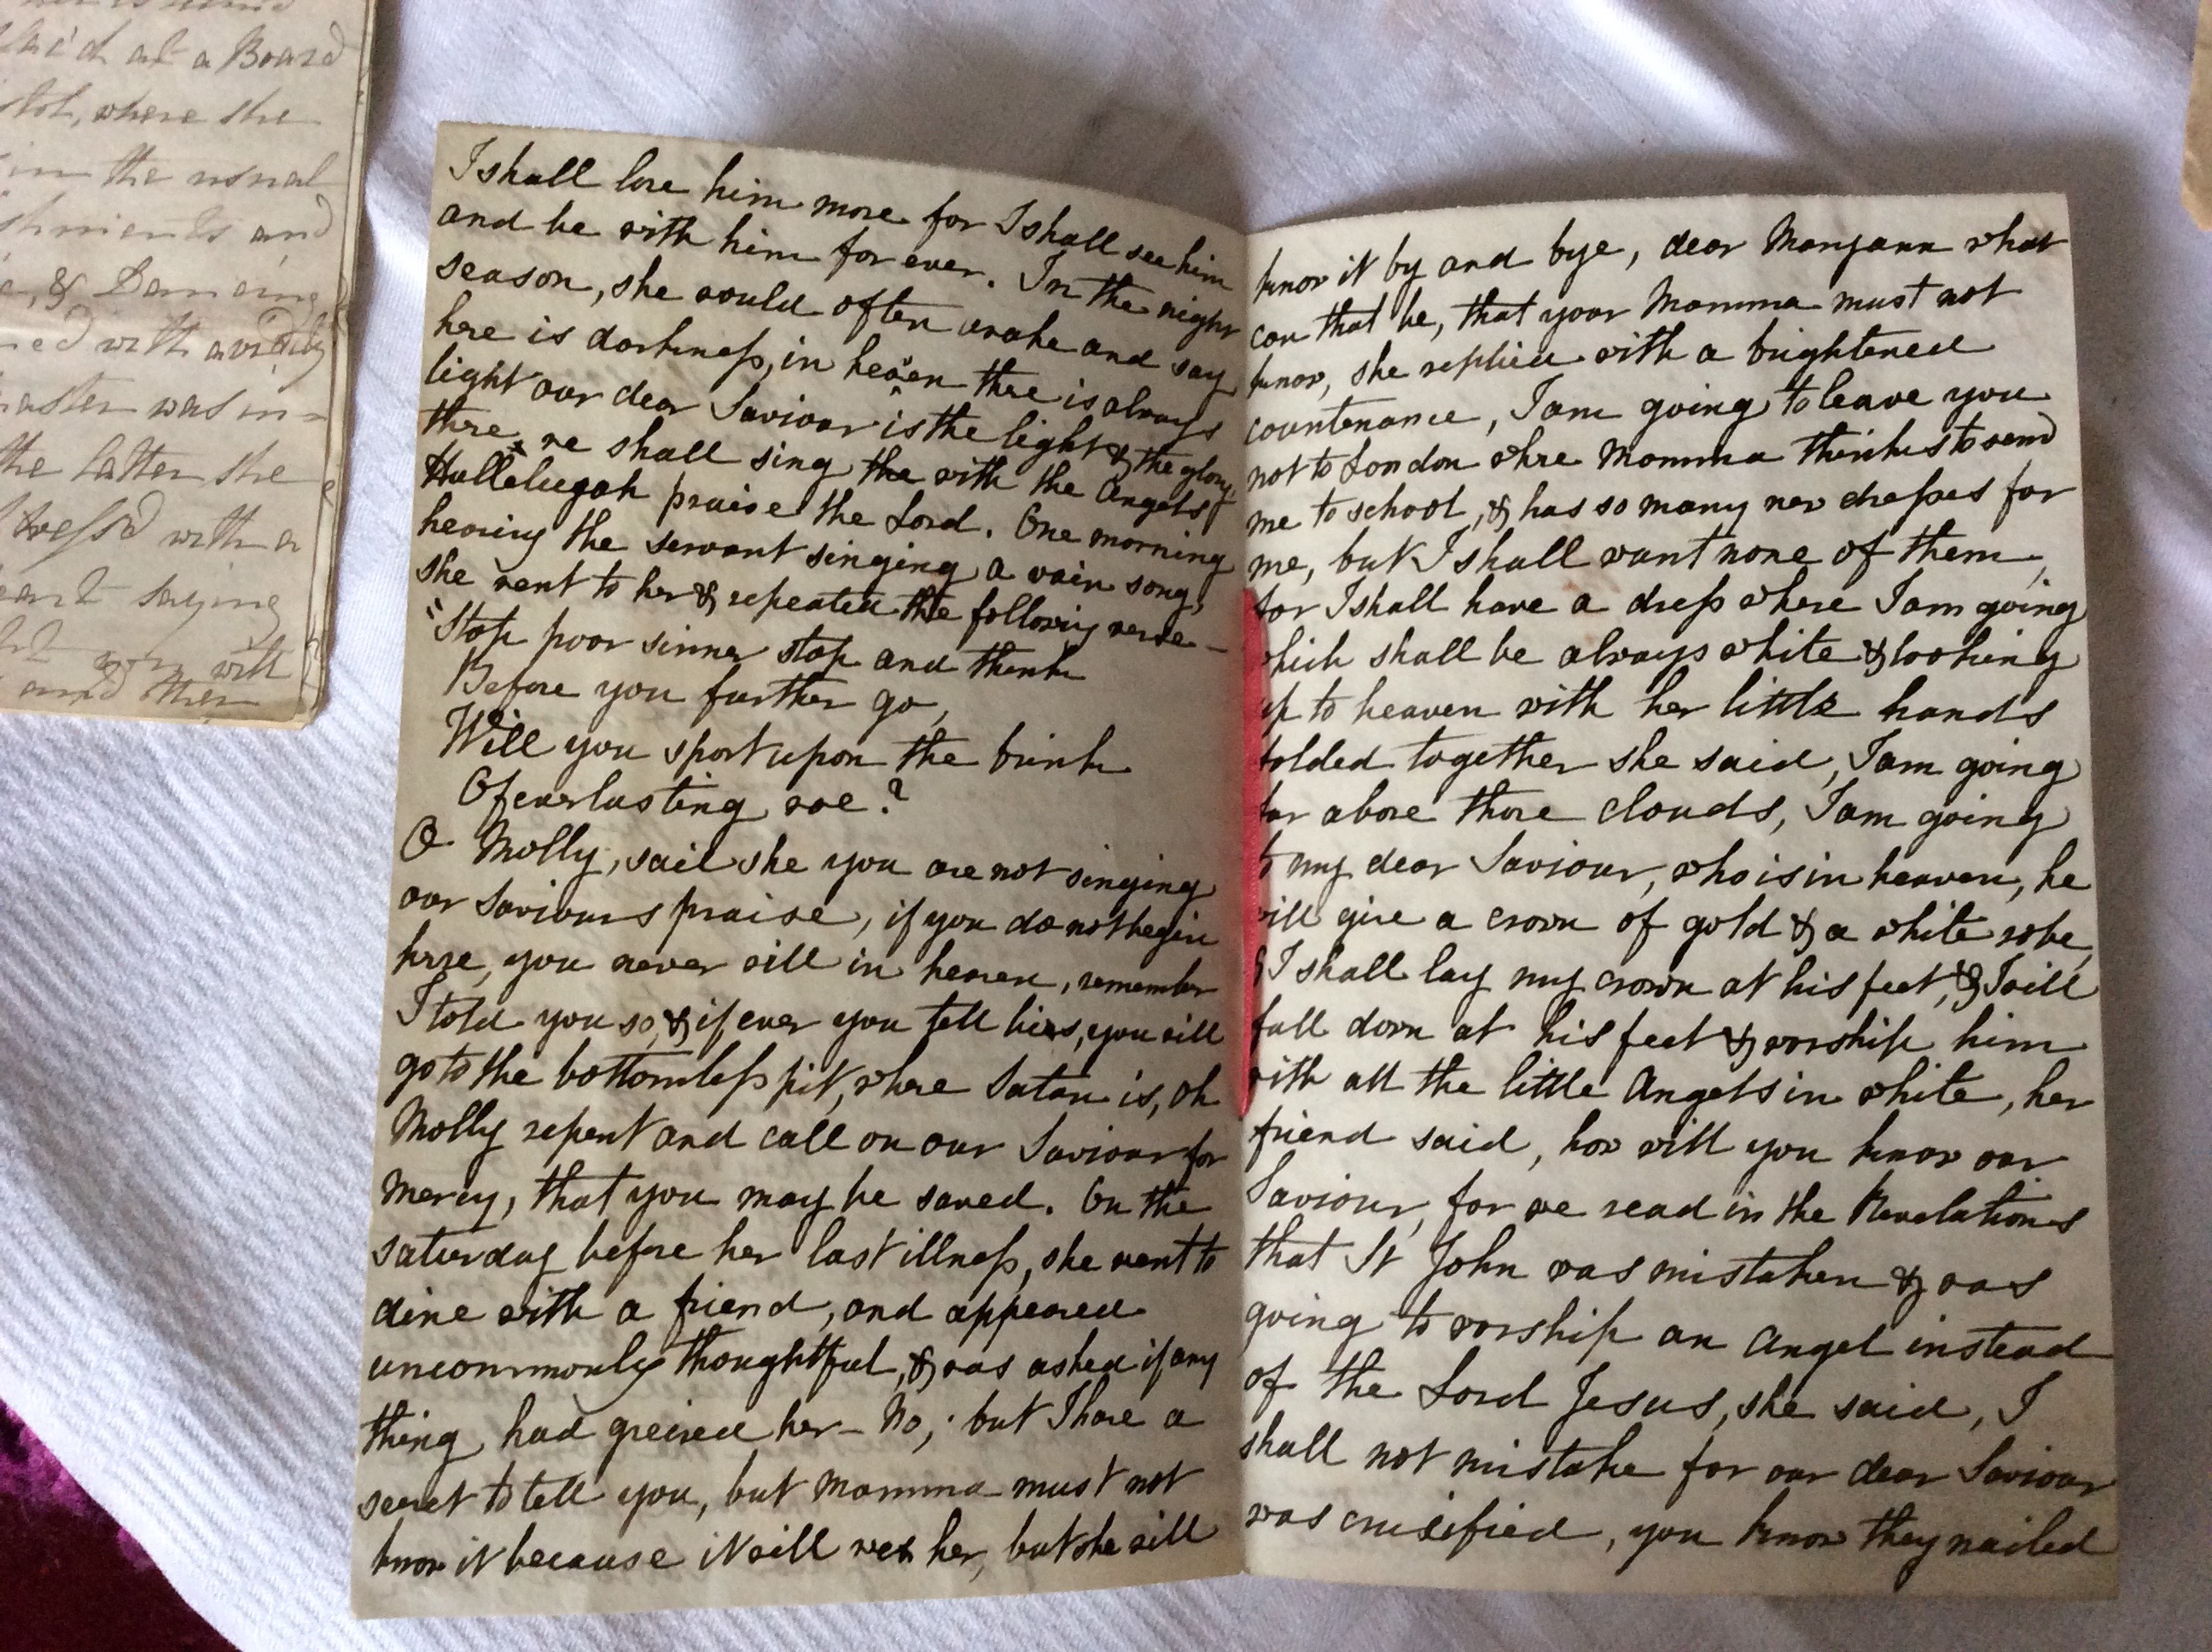 said at a Board
where she
in the usual
and
& Dancing
with avidity
master was in=
the latter she
with a
saying
will
and then
I shall love him more for I shall see him
and be with him for ever. In the night
season, she would often awake and say
here is darkness, in heaven there is always
light our dear Saviour is the light & the glory
there, we shall sing the with the Angels
Hallelugah praise the Lord. One morning
hearing the servant singing a vain song,
she went to her & repeated the following verse –
"Stop poor sinner stop and think
Before you further go,
Will you sport upon the brink
Of everlasting woe?
O Molly, said she you are not singing
our Saviours praise, if you do not begin
here, you never will in heaven, remember
I told you so, & if ever you tell lies, you will
go to the bottomless pit, where Satan is, Oh
Molly repent and call on our Saviour for
Mercy, that you may be saved. On the
saturday before her last illness, she went to
dine with a friend, and appeared
uncommonly thoughtful, & was asked if any
thing had greived her – No; but I have a
secret to tell you, but Mamma must not
know it because it will vex her, but she will
know it by and bye, dear Maryann what
can that be, that your Mamma must not
know, she replied with a brightened
countenance, I am going to leave you
not to London whre Mamma thinks to send
me to school, & has so many new dresses for
me, but I shall want none of them,
for I shall have a dress where I am going
which shall be always white & looking
up to heaven with her little hands
folded together she said, I am going
far above those clouds, I am going
to my dear Saviour, who is in heaven, he
will give a crown of gold & a white robe,
& I shall lay my crown at his feet, & I will
fall down at his feet & worship him
with all the little Angels in white, her
friend said, how will you know our
Saviour, for we read in the Revelations
that St John was mistaken & was
going to worship an Angel instead
of the Lord Jesus, she said, I
shall not mistake for our dear Saviour
was crusified, you know they nailed